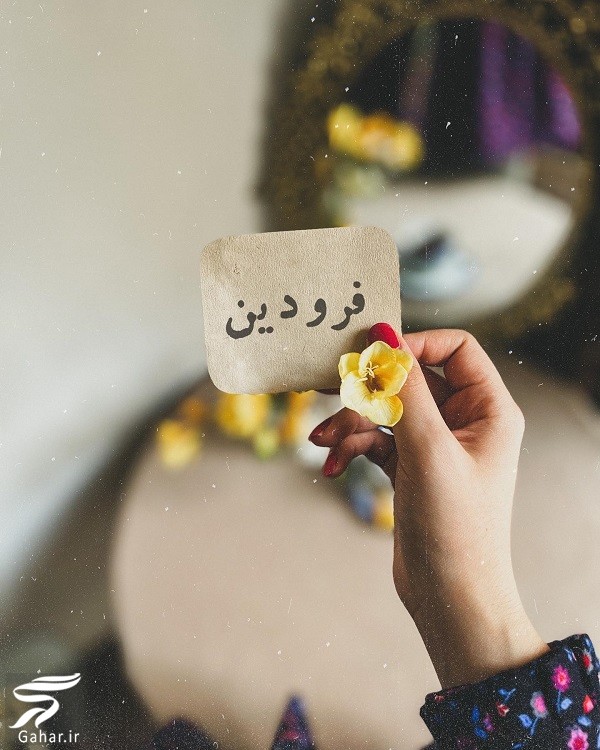 فرودین
Gahar.ir